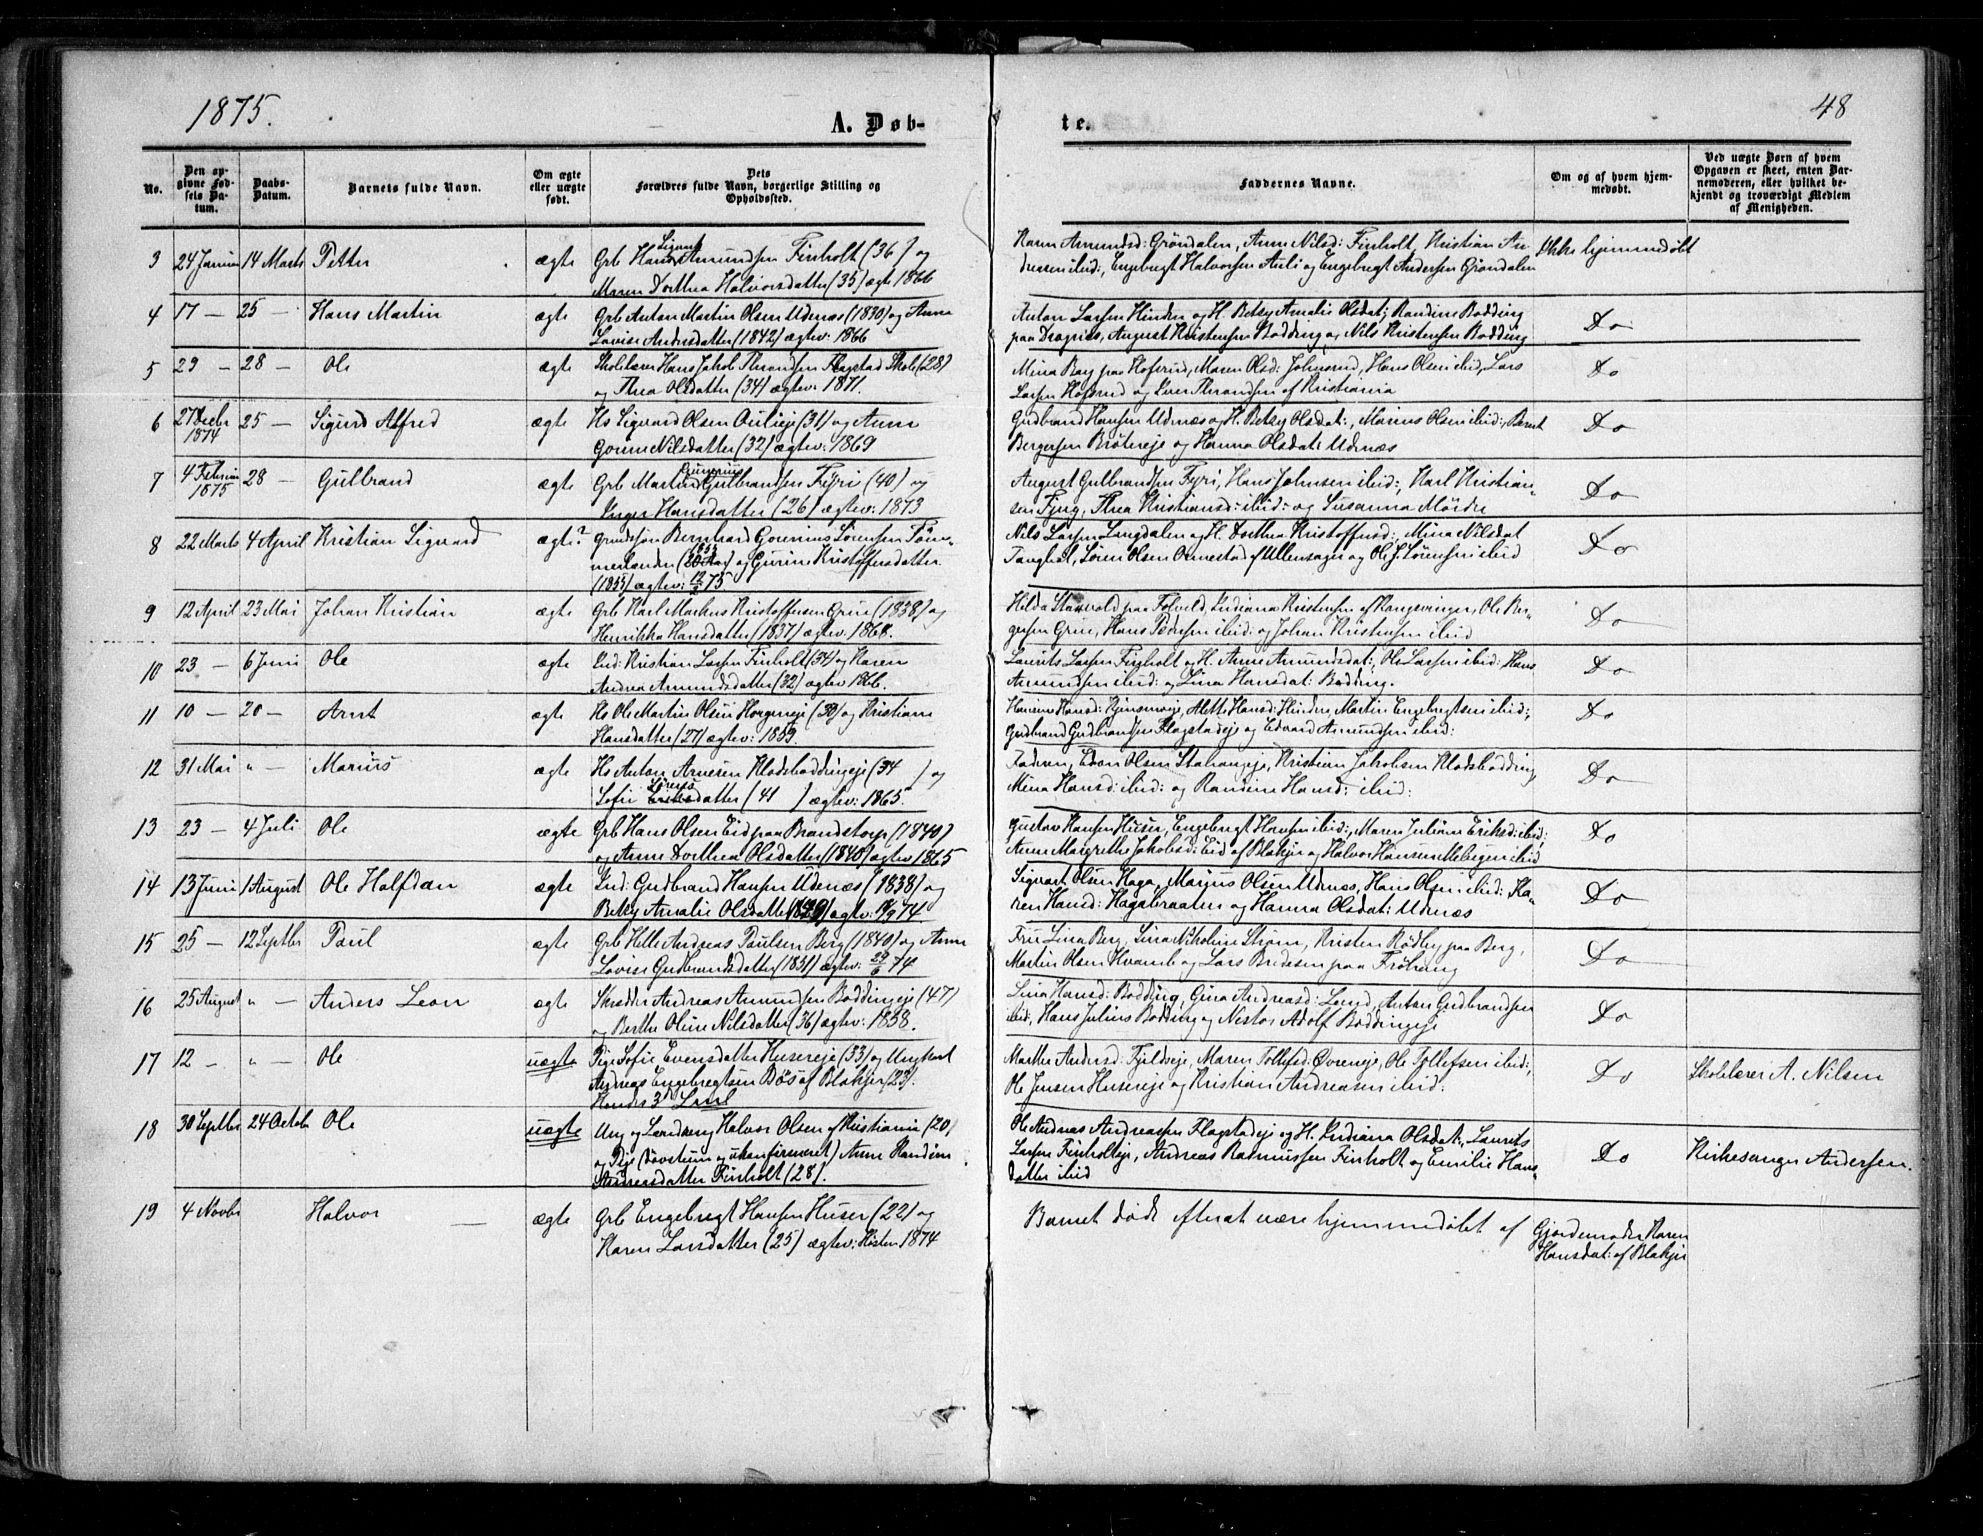 1875.
48
A. Døb-
te.
No.
Den opgivne Fødsels Datum.
Daabs-Datum.
Barnets fulde Navn.
Om ægte eller uægte født.
Dets Forældres fulde Navn, borgerlige Stilling og Opholdssted.
Faddernes Navne.
Om og af hvem hjemmedøbt.
Ved uægte Børn af hvem Opgaven er skeet, enten Barnemoderen, eller hvilket bekjendt og troværdigt Medlem af Menigheden.
3 24 Januar 14 Marts Petter ægte Grb Hans Sigvart Amundsen Finholt (36) og
Maren Dorthea Halvorsdatter (35) ægt 1866
Karen Amundsd: Grøndalen, Anne Nilsd: Finholt, Kristian An-
dreasen ibid:, Engebregt Halvorsen Auli og Engebregt Andersen Grøndalen
Ikke hjemmedøbt
4 17 — 25 — Hans Martin ægte Grb Anton Martin Olsen Udenæs (1830) og Anne
Lovise Andersdatter (1842) ægtev: 1866
Anton Larsen Hinden og H. Betsy Amalie Olsdat; Randine Bodding
paa Dragnæs, August Kristensen Bodding og Nils Kristensen Bodding
Do
5 23 — 28 — Ole ægte Skolelærer Hans Jakob Throndsen Flagstad Skole (28)
og Thea Olsdatter (34) ægtev: 1871.
Mina Berg paa Hofsrud, Maren Olsd: Johnsrud, Hans Olsen ibid, Lars
Larsen Hofsrud og Iver Throndsen af Kristiania
Do
6 27 Decbr 1874 25 — Sigurd Alfred ægte Hs Sigvard Olsen Aulieje (31) og Anne
Gorine Nilsdatter (32) ægtev: 1869
Gudbrand Hansen Udenæs og H. Betsy Olsdat:, Marius Olsen ibid:, Bernt
Bergersen Bröteeje og Hanna Olsdat: Udenæs
Do
7 4 Februar 1875 28 — Gulbrand ægte Grb Martin Gunerius Gulbrandsen Fyri (40) og
Inger Hansdatter (26) ægtev: 1873
August Gulbrandsen Fyri, Hans Johnsen ibid:, Karl Kristian-
sen Fjug, Thea Kristiansd: ibid: og Susanna Mördre
Do
8 22 Marts 4 April Kristian Sigvard ægte? Grundson Bernhard Gorenius Sörensen Töm-
merlanden (20 Aar) 1855 og Gurine Kristoffersdatter
(1855) ægtev: 12/2 75
Nils Larsen Langdalen og H. Dorthea Kristoffersd:, Mina Nilsdat
Tangholt, Sören Olsen Ormestad af Ullensager og Ole J. Sörensen ibid
Do
9 12 April 23 Mai Johan Kristian ægte Grb Karl Markus Kristoffersen Grue (1838) og
Henrikka Hansdatter (1837) ægtev: 1868.
Hilda Staavold paa Folveld, Indiana Kristensen af Kongsvinger, Ole Ber-
gersen Grue, Hans Pedersen ibid: og Johan Kristiansen ibid
Do
10 23 — 6 Juni Ole ægte Ind: Kristian Larsen Finholt (34) og Karen
Andrea Amundsdatter (32) ægtev 1866.
Laurits Larsen Finholt og H. Anne Amundsdat:, Ole Larsen ibid: Hans
Amundsen ibid: og Lina Hansdat: Bodding.
Do
11 10 — 20 — Arnt ægte Hs Ole Martin Olsen Horgeneje (30) og Kristiane
Hansdatter (27) ægtev: 1869.
Hansine Hansd: Hjinsmoeje, Alette Hansd: Hinden, Martin Engebregtsen ibid:,
Gudbrand Gudbrandsen Flagstadeje og Edvard Amundsen ibid:
Do
12 31 Mai " — Marius ægte Hs Anton Arnesen Klodsboddingeje (34) og
Sofie Sörens Eriksdatter (41) ægtev: 1865.
Faderen, Edon Olsen Stahangeje, Kristian Jakobsen Klodsbodding
Mina Hansd: ibid: og Randine Hansd: ibid:
Do
13 23 — 4 Juli Ole ægte Grb Hans Olsen Eid paa Brandstorp (1840)
og Anne Dorthea Olsdatter (1840) ægtev 1865
Gustav Hansen Huser, Engebregt Hansen ibid:, Maren Juliane Eriksd: ibid:,
Anne Margrethe Jakobsd: Eid af Blakjer og Halvor Hansen Melvegen ibid
Do
14 13 Juni 1 August Ole Halfdan ægte Ind: Gudbrand Hansen Udenæs (1838) og
Betsy Amalie Olsdatter (1849) ægtev: 11/9 74
Sigvart Olsen Haga, Marius Olsen Udenæs, Hans Olsen ibid: Ka-
ren Hansd: Hagabraaten og Hanna Olsdat: Udenæs
Do
15 25 — 12 Septbr Paul ægte Grb Helle Andreas Paulsen Berg (1840) og Anne
Lovise Gudbrandsdatter (1851) ægtev: 29/6 74
Fru Lina Berg, Lina Nikoline Ström, Kristen Rödby paa Berg,
Martin Olsen Kvamb og Lars Bredesen paa Fröhaug
Do
16 25 August " — Anders Leon ægte Skrædder Andreas Amundsen Boddingeje (47)
og Berthe Oline Nilsdatter (36) ægtev: 1858.
Lina Hansd: Bodding, Gina Andreasd: Lund, Anton Gudbrandsen
ibid, Hans Julius Bodding og Nestor Adolf Boddingeje
Do
17 12 — " — Ole uægte Pige Sofie Evensdatter Husereje (33) og Ungkarl
Andreas Engebregtsen Bös af Blakjer (23).
Hendes 3die Leiel
Marthe Andersd: Fjeldseje, Maren Tollefsd: Ovreneje, Ole Tollefsen ibid:,
Ole Jensen Husereje og Kristian Andreasen ibid:
Do
Skolelærer A. Nilsen
18 30 Septbr 24 Octob Ole uægte Ung og Landværg Halvor Olsen af Kristiania (20)
og Pige (døvstum og ukonfirmeret) Anne Randine
Andreasdatter Finholt (28).
Ole Andreas Andreasen Flagstadeje og H. Indiana Olsdat:, Laurits
Larsen Finholteje, Andreas Rasmussen Finholt og Emilie Hans-
datter ibid
Do
Kirkesanger Andersen.
19 4 Novbr Halvor — ægte Grb Engebregt Hansen Huser (22) og
Karen Larsdatter (25) ægtev: Høsten 1874
Barnet døde efterat være hjemmedøbt af
Gjordemoder Karen
Hansdat: af Blakjer